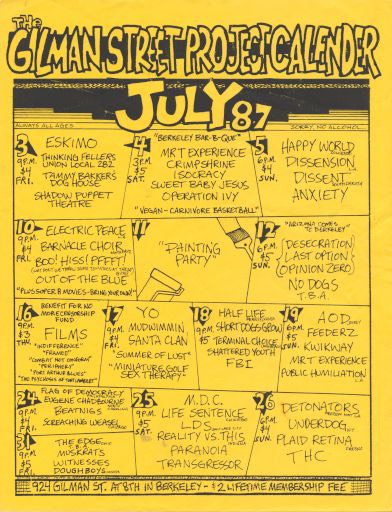 THE
GILMAN STREET PROJECT CALENDER
JULY 87
ALWAYS ALL AGES
SORRY, NO ALCOHOL
3
9 P.M.
$4
FRI.
ESKIMO
THINKING FELLERS
UNION LOCAL 282
TAMMY BAKKER'S
DOG HOUSE
SHADOW PUPPET
THEATRE
4
3 P.M.
$5
SAT.
"BERKELEY BAR-B-QUE"
MR T EXPERIENCE
CRIMPSHRINE
ISOCRACY
SWEET BABY JESUS
OPERATION IVY
"VEGAN-CARNIVORE BASKETBALL"
5
6 P.M.
$4
SUN.
HAPPY WORLD
DISSENSION
DISSENT
ANXIETY
10
9 P.M.
$4
FRI.
ELECTRIC PEACE
BARNACLE CHOIR
BOO! HISS! PFFFT!
OUT OF THE BLUE
"PLUS SUPER 8 MOVIES-BRING YOUR OWN!"
11
"PAINTING
PARTY"
12
6 P.M.
$5
SUN.
"ARIZONA COMES
TO BERKELEY"
DESECRATION
LAST OPTION
OPINION ZERO
NO DOGS
T.B.A.
16
9 P.M.
$3
THU.
BENEFIT FOR NO
MORE CENSORSHIP
FUND
FILMS
"INDIFFERENCE"
"FRAMED"
"COMBAT NOT CONFORM"
"PERIPHERY"
"PORT ARTHUR BLUES"
17
9 P.M.
$4
FRI.
YO
MUDWIMMIN
SANTA CLAN
"SUMMER OF LUST"
"MINIATURE GOLF
SEX THERAPY"
18
9 P.M.
$5
SAT.
HALF LIFE
SHORT DOGS GROW
TERMINAL CHOICE
SHATTERED YOUTH
FBI
19
6 P.M.
$4
SUN.
AOD
FEEDERZ
KWIKWAY
MR T EXPERIENCE
PUBLIC HUMILIATION
24
9 P.M.
$4
FRI.
FLAG OF DEMOCRACY
EUGENE CHADBOURNE
BEATNIGS
SCREACHING WEASEL
25
9 P.M.
$5
SAT.
M.D.C.
LIFE SENTENCE
LDS
REALITY VS. THIS
PARANOIA
TRANSGRESSOR
26
6 P.M.
$4
SUN.
DETONATORS
UNDERDOG
PLAID RETINA
THC
31
9 P.M.
$5
FRI.
THE EDGE
T.B.A.
MUSKRATS
WITNESSES
DOUGHBOYS
924 GILMAN ST. AT 8TH IN BERKELEY - $2 LIFETIME MEMBERSHIP FEE